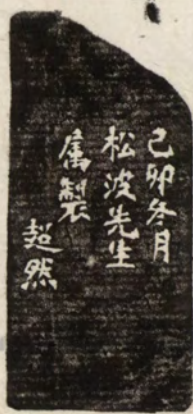 己卯冬月
松波先生
属製
超然